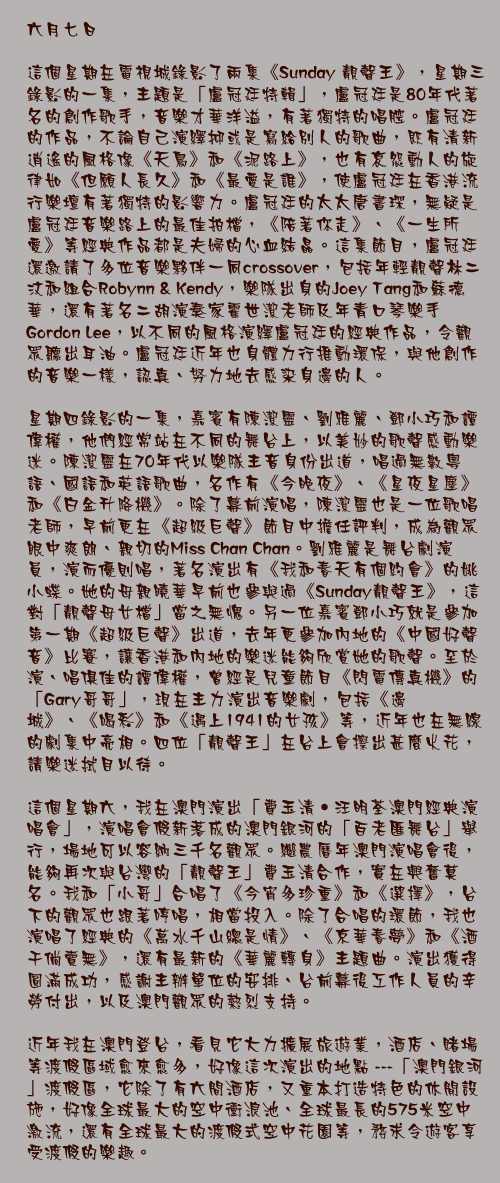 六月七日
這個星期在電視城錄影了兩集《Sunday 靚聲王》，星期三
錄影的一集，主題是「盧冠廷特輯」，盧冠廷是80年代著
名的創作歌手，音樂才華洋溢，有著獨特的唱腔。盧冠廷
的作品，不論自己演繹抑或是寫給別人的歌曲，既有清新
逍遙的風格像《天鳥》和《泥路上》，也有哀怨動人的旋
律如《但願人長久》和《最愛是誰》，使盧冠廷在香港流
行樂壇有著獨特的影響力。盧冠廷的太太唐書琛，無疑是
盧冠廷音樂路上的最佳拍檔，《陪著你走》、《一生所
愛》等經典作品都是夫婦的心血結晶。這集節目，盧冠廷
還邀請了多位音樂夥伴一同crossover，包括年輕靚聲林二
汶和組合Robynn & Kendy，樂隊出身的Joey Tang和蘇德
華，還有著名二胡演奏家霍世潔老師及年青口琴樂手
Gordon Lee，以不同的風格演繹盧冠廷的經典作品，令觀
眾聽出耳油。盧冠廷近年也身體力行推動環保，與他創作
的音樂一樣，認真、努力地去感染身邊的人。
星期四錄影的一集，嘉賓有陳潔靈、劉雅麗、鄧小巧和譚
偉權，他們經常站在不同的舞台上，以美妙的歌聲感動樂
迷。陳潔靈在70年代以樂隊主音身份出道，唱過無數粵
語、國語和英語歌曲，名作有《今晚夜》、《星夜星塵》
和《白金升降機》。除了幕前演唱，陳潔靈也是一位歌唱
老師，早前更在《超級巨聲》節目中擔任評判，成為觀眾
眼中爽朗、親切的Miss Chan Chan。劉雅麗是舞台劇演
員，演而優則唱，著名演出有《我和春天有個約會》的姚
小蝶。她的母親曉華早前也參與過《Sunday靚聲王》，這
對「靚聲母女檔」當之無愧。另一位嘉賓鄧小巧就是參加
第一期《超級巨聲》出道，去年更參加內地的《中國好聲
音》比賽，讓香港和內地的樂迷能夠欣賞她的歌聲。至於
演、唱俱佳的譚偉權，曾經是兒童節目《閃電傳真機》的
「Gary哥哥」，現在主力演出音樂劇，包括《邊
城》、《唱影》和《遇上1941的女孩》等，近年也在無綫
的劇集中亮相。四位「靚聲王」在台上會擦出甚麼火花，
請樂迷拭目以待。
這個星期六，我在澳門演出「費玉清•汪明荃澳門經典演
唱會」，演唱會假新落成的澳門銀河的「百老匯舞台」舉
行，場地可以容納三千名觀眾。繼農曆年澳門演唱會後，
能夠再次與台灣的「靚聲王」費玉清合作，實在興奮莫
名。我和「小哥」合唱了《今宵多珍重》和《選擇》，台
下的觀眾也跟著哼唱，相當投入。除了合唱的環節，我也
演唱了經典的《萬水千山總是情》、《京華春夢》和《酒
干倘賣無》，還有最新的《華麗轉身》主題曲。演出獲得
圓滿成功，感謝主辦單位的安排、台前幕後工作人員的辛
勞付出，以及澳門觀眾的熱烈支持。
近年我在澳門登台，看見它大力擴展旅遊業，酒店、賭場
等渡假區域愈來愈多，好像這次演出的地點 ---「澳門銀河
」渡假區，它除了有六間酒店，又重本打造特色的休閒設
施，好像全球最大的空中衝浪池、全球最長的575米空中
激流，還有全球最大的渡假式空中花園等，務求令遊客享
受渡假的樂趣。